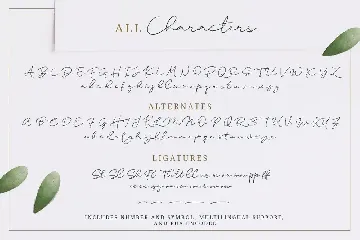 ALL Characters
A B C D E F G H I J K L M N O P Q R S T U V W X Y Z
a b c d e f g h i j k l m n o p q r s t u v w x y z
ALTERNATES
A B C D E F G H I J K L M N O P Q R S T U V W X Y Z
a b c d e f g h i j k l m n o p q r s t u v w x y z
LIGATURES
INCLUDES NUMBER AND SYMBOL, MULTILINGUAL SUPPORT,
AND PUA ENCODED